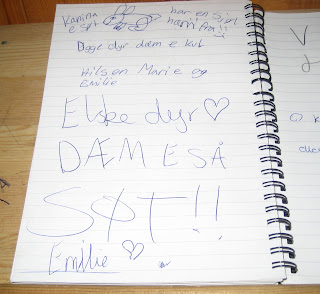 Kanina har en sjel
e søt
Dogge dyr dæm e kul
Hilsen Marie og
Emilie
Elske dyr ♡
DÆM E SÅ
SØT!!
Emilie ♡